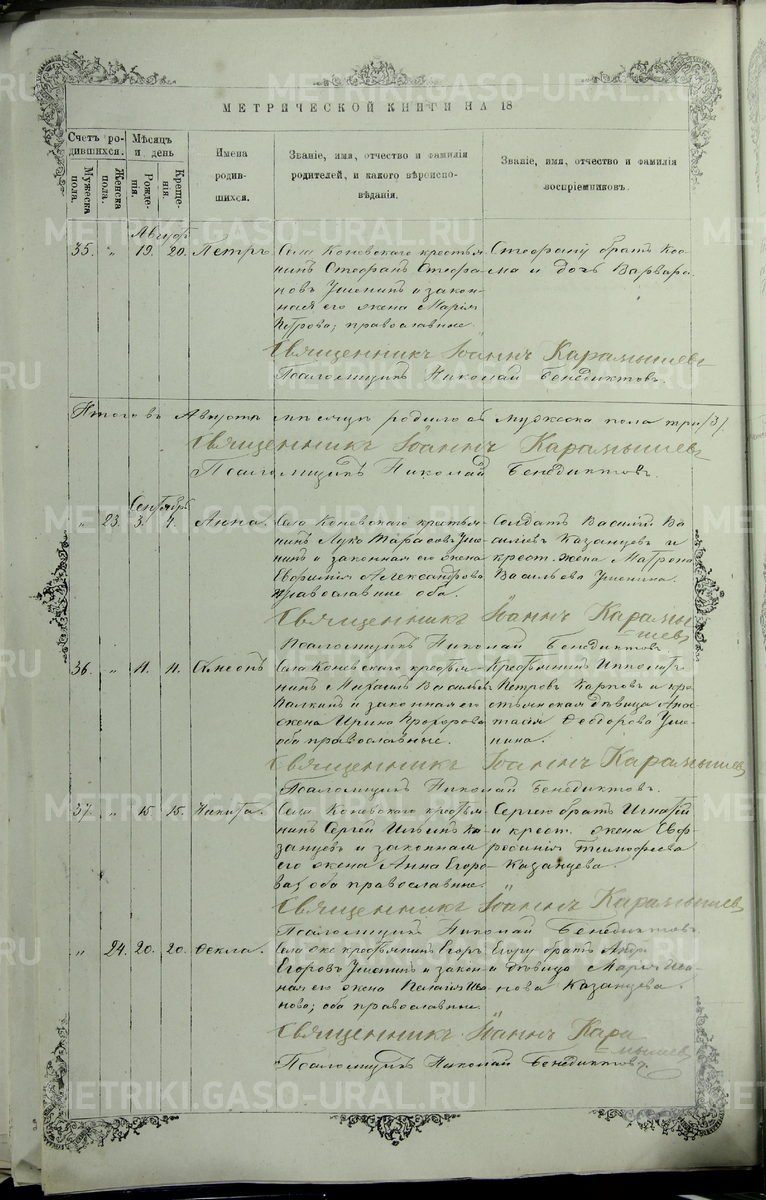 МЕТРИЧЕСКОЙ КНИГИ НА 18
Счетъ родившихся.
Мужеска пола.
Женска пола.
Мѣсяцъ и день
Рожденія.
Крещенія.
Имена родившихся.
Званіе, имя, отчество и фамилія родителей, и какого вѣроисповѣданія.
Званіе, имя, отчество и фамилія воспріемниковъ.
Августъ
35. " 19. 20. Петръ
Села Коневскаго крестья-
нинъ Стефанъ Стефа-
новъ Ушенинъ и закон-
ная его жена Марія
Петрова; православные.
Стефану братъ Кос-
ма и дочь Варвара
Священникъ Іоаннъ Карамышевъ
Псаломщикъ Николай Бенедиктовъ.
Итого въ Августѣ мѣсяцѣ родилось мужеска пола три /3/.
Священникъ Іоаннъ Карамышевъ
Псаломщикъ Николай Бенедиктовъ.
Сентябрь
" 23. 3. 4. Анна.
Села Коневскаго крестья-
нинъ Лука Тарасовъ Уше-
нинъ и законная его жена
Александрова
православные оба.
Солдатъ Василій Ва-
сильевъ Казанцевъ и
крест. жена Матрона
Васильева Ушенина.
Священникъ Іоаннъ Карамы-
шевъ
Псаломщикъ Николай Бенедиктовъ.
36. " 11. 11.
Села Коневскаго крестья-
нинъ Михаилъ Васильевъ
и законная его
жена Ирина Прохорова
оба православные.
Крестьянинъ Ипполитъ
Петровъ Карповъ и кре-
стьянская дѣвица Анас-
тасія Феодорова Уше-
нина.
Священникъ Іоаннъ Карамышевъ
Псаломщикъ Николай Бенедиктовъ.
37. " 15. 15. Никита.
Села Коневскаго крестья-
нинъ Сергей Ильинъ Ка-
занцевъ и законная
его жена Анна Егоро-
ва; оба православные.
Сергею братъ Игнатій
и крест. жена Евф-
росинія Тимофеева
Казанцева.
Священникъ Іоаннъ Карамышевъ
Псаломщикъ Николай Бенедиктовъ.
" 24. 20. 20. Фекла.
Села же крестьянинъ Егоръ
Егоровъ Ушенинъ и закон-
ная его жена Пелагія Ива-
нова; оба православные.
Егору братъ
и дѣвица Марія Ива-
нова Казанцева.
Священникъ Іоаннъ Кара-
мышевъ
Псаломщикъ Николай Бенедиктовъ.
METRIKI.GASO-URAL.RU